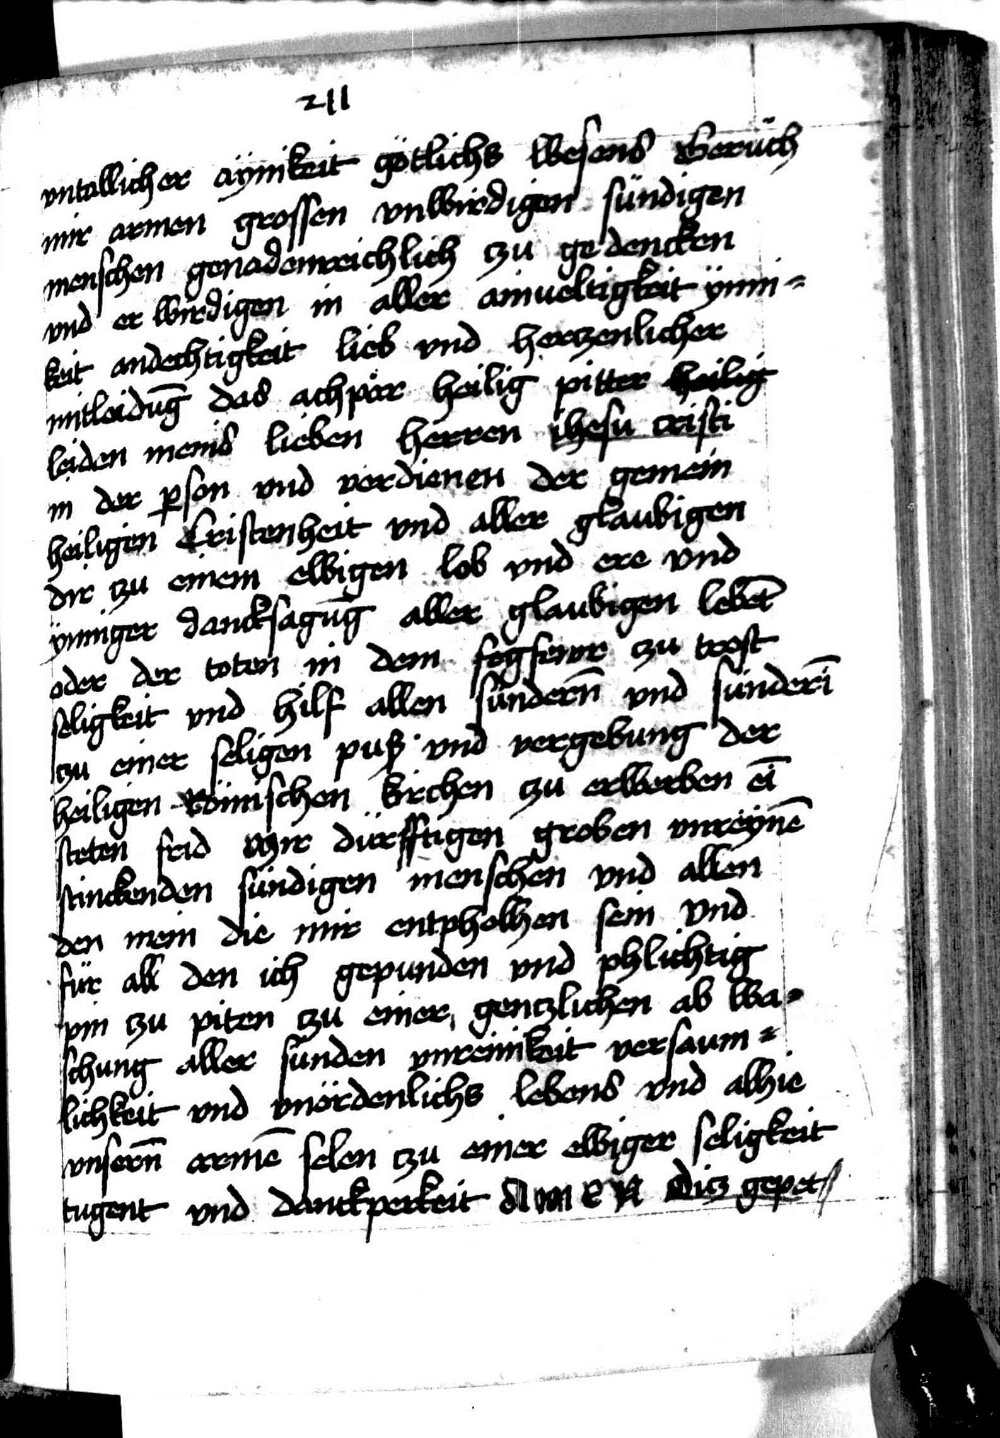 211
vntallicher aynikeit götlichs wesens Geruch
mir armen grossen vnwirdigen sündigen
menschen genadenreichlich zu gedencken
vnd er wirdigen in aller ainueltigkeit ynni=
keit andechtigkeit lieb vnd herczenlicher
mitleidūg das achpär heilig pitter heilig
leiden meins lieben herren ihesu cristi
in der pson vnd verdienen der gemein
heiligen Cristenheit vnd aller glaubigen
dir zu einem ewigen lob vnd ere vnd
ynniger dancksagūg aller glaubigen lebēt
oder der toten in dem fegfewr zu trost
seligkeit vnd hilf allen sündern̄ vnd sünderī
zu einer seligen puß vnd vergebung der
heiligen Römischen kirchen zu erwerben eī
steten frid Mir dürfftigen groben vnreynē
stinckenden sündigen menschen vnd allen
den mein die mir entpholhen sein vnd
für all den ich gepunden vnd phlichtig
pin zu piten zu einer genczlichen ab wa=
schung aller sünden vnreinikeit versaum=
lichkeit vnd vnördenlichs lebens vnd alhie
vnsern̄ armē selen zu einer ewiger seligkeit
tugent vnd danckperkeit AMEN Dicz gepet